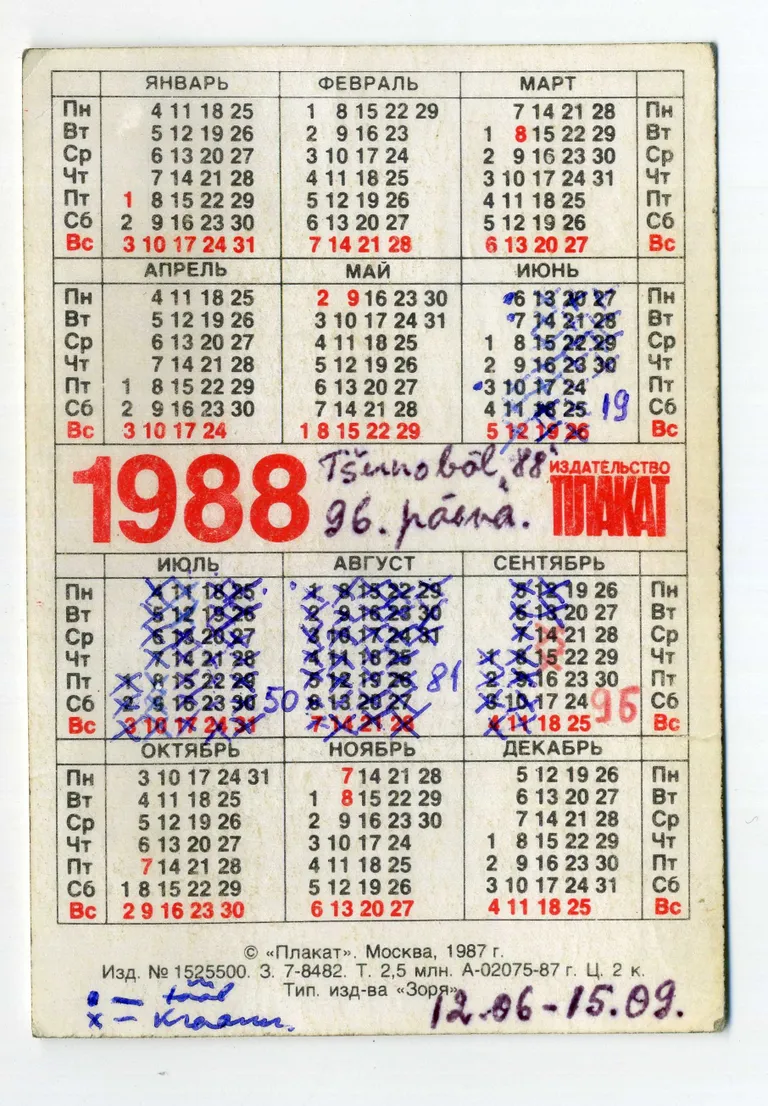 ЯНВАРЬ ФЕВРАЛЬ МАРТ
Пн 4 11 18 25 1 8 15 22 29 7 14 21 28 Пн
Вт 5 12 19 26 2 9 16 23 1 8 15 22 29 Вт
Ср 6 13 20 27 3 10 17 24 2 9 16 23 30 Ср
Чт 7 14 21 28 4 11 18 25 3 10 17 24 31 Чт
Пт 1 8 15 22 29 5 12 19 26 4 11 18 25 Пт
Сб 2 9 16 23 30 6 13 20 27 5 12 19 26 Сб
Вс 3 10 17 24 31 7 14 21 28 6 13 20 27 Вс
АПРЕЛЬ МАЙ ИЮНЬ
Пн 4 11 18 25 2 9 16 23 30 6 13 20 27 Пн
Вт 5 12 19 26 3 10 17 24 31 7 14 21 28 Вт
Ср 6 13 20 27 4 11 18 25 1 8 15 22 29 Ср
Чт 7 14 21 28 5 12 19 26 2 9 16 23 30 Чт
Пт 1 8 15 22 29 6 13 20 27 3 10 17 24 Пт
Сб 2 9 16 23 30 7 14 21 28 4 11 18 25 19 Сб
Вс 3 10 17 24 1 8 15 22 29 5 12 19 26 Вс
1988 Tšernobõl "88" ИЗДАТЕЛЬСТВО
96. päeva. ПЛАКАТ
ИЮЛЬ АВГУСТ СЕНТЯБРЬ
Пн 4 11 18 25 1 8 15 22 29 5 12 19 26 Пн
Вт 5 12 19 26 2 9 16 23 30 6 13 20 27 Вт
Ср 6 13 20 27 3 10 17 24 31 7 14 21 28 Ср
Чт 7 14 21 28 4 11 18 25 1 8 15 22 29 Чт
Пт 1 8 15 22 29 5 12 19 26 81 2 9 16 23 30 Пт
Сб 2 9 16 23 30 50 6 13 20 27 3 10 17 24 96 Сб
Вс 3 10 17 24 31 7 14 21 28 4 11 18 25 Вс
ОКТЯБРЬ НОЯБРЬ ДЕКАБРЬ
Пн 3 10 17 24 31 7 14 21 28 5 12 19 26 Пн
Вт 4 11 18 25 1 8 15 22 29 6 13 20 27 Вт
Ср 5 12 19 26 2 9 16 23 30 7 14 21 28 Ср
Чт 6 13 20 27 3 10 17 24 1 8 15 22 29 Чт
Пт 7 14 21 28 4 11 18 25 2 9 16 23 30 Пт
Сб 1 8 15 22 29 5 12 19 26 3 10 17 24 31 Сб
Вс 2 9 16 23 30 6 13 20 27 4 11 18 25 Вс
© «Плакат». Москва, 1987 г.
Изд. № 1525500. З. 7-8482. Т. 2,5 млн. А-02075-87 г. Ц. 2 к.
Тип. изд-ва «Зоря»
• — tööl
x — 12.06-15.09.